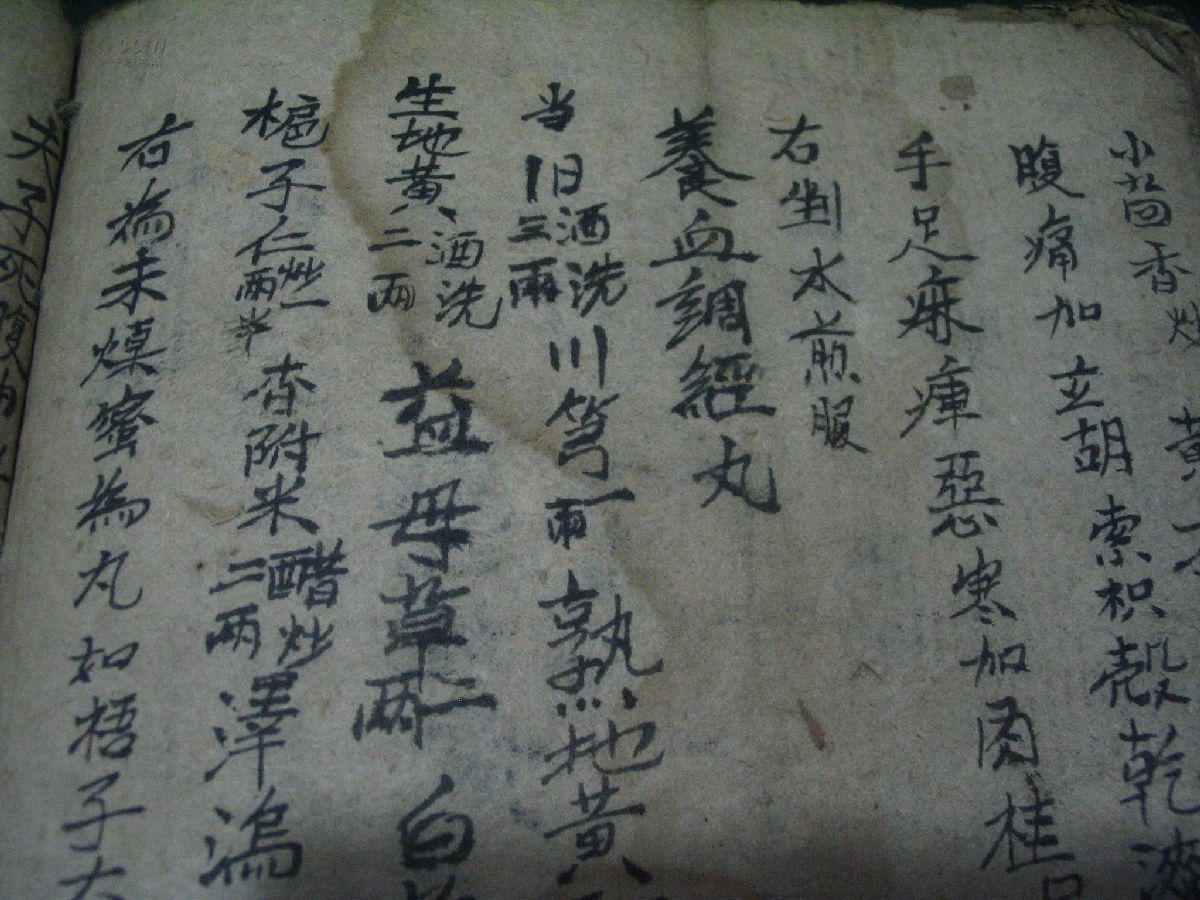 小茴香炒 黄
腹痛加玄胡索枳殼乾漆
手足麻痺惡寒加肉桂
右剉水煎服
養血調經丸
当旧酒洗三兩川芎一兩熟地黄
生地黄酒洗二兩益母草二兩白
梔子仁炒一兩半香附米醋炒二兩澤瀉
右為末煉蜜為丸如梧子大
子死腹内